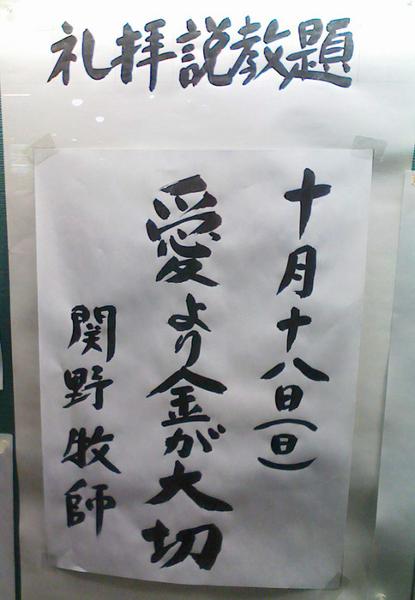 礼拝説教題
十月十八日(日)
愛より金が大切
関野牧師